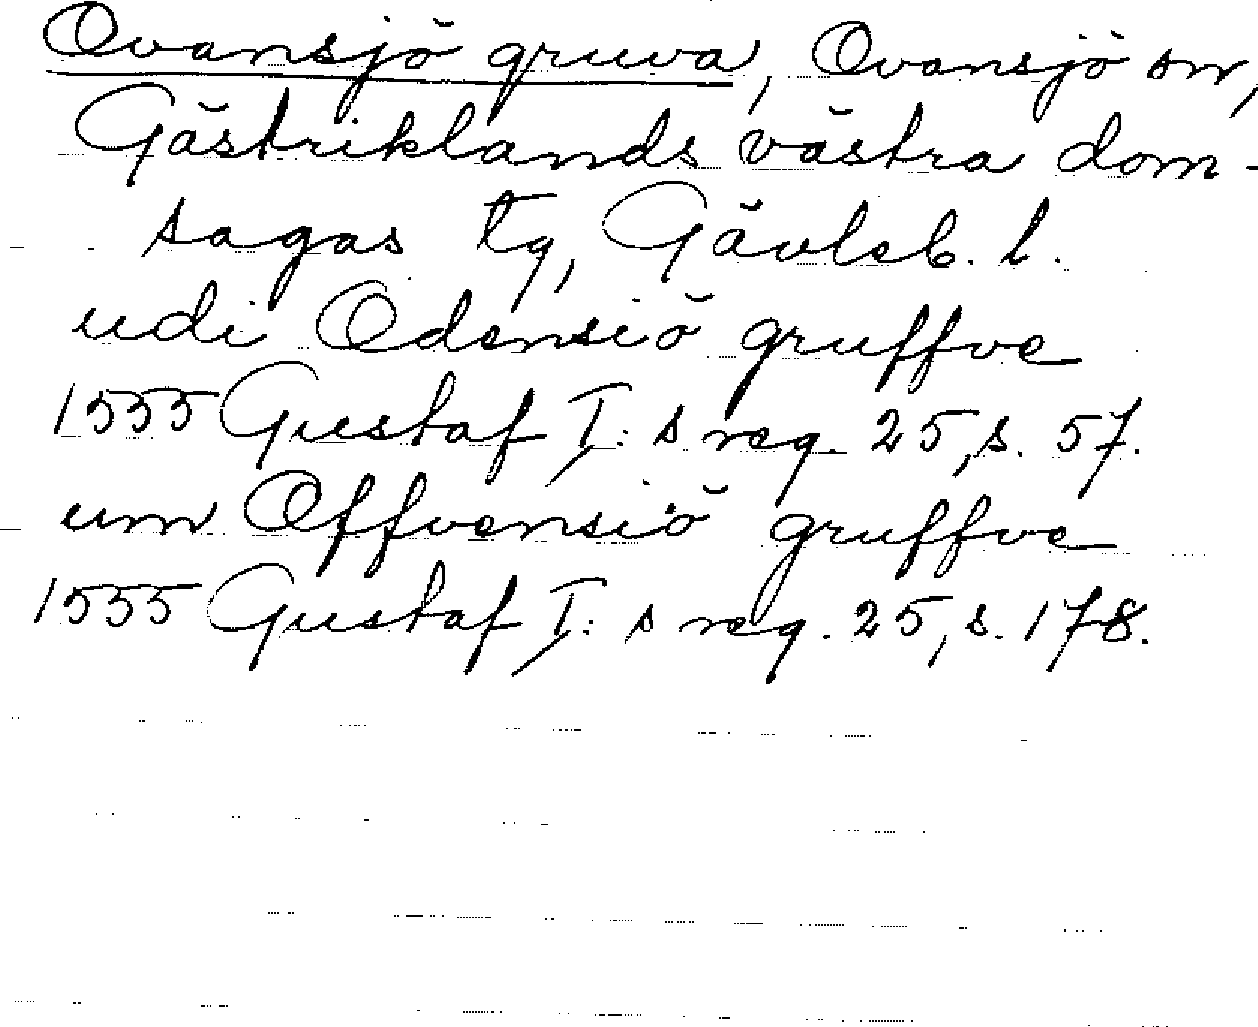 Ovansjö gruva, Ovansjö sn,
Gästriklands västra dom-
sagas tg, Gävleb. l.
udi Odensiö gruffve
1555 Gustaf I:s reg. 25, s. 57.
um Offvensiö gruffve
1555 Gustaf I:s reg. 25, s. 178.